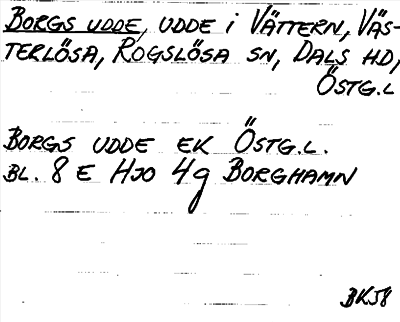 BORGS UDDE, UDDE i VÄTTERN, VÄS-
TERLÖSA, ROGSLÖSA SN, DALS HD,
ÖSTG.L
BORGS UDDE EK ÖSTG.L.
BL. 8 E HJO 4g BORGHAMN
BKJ8